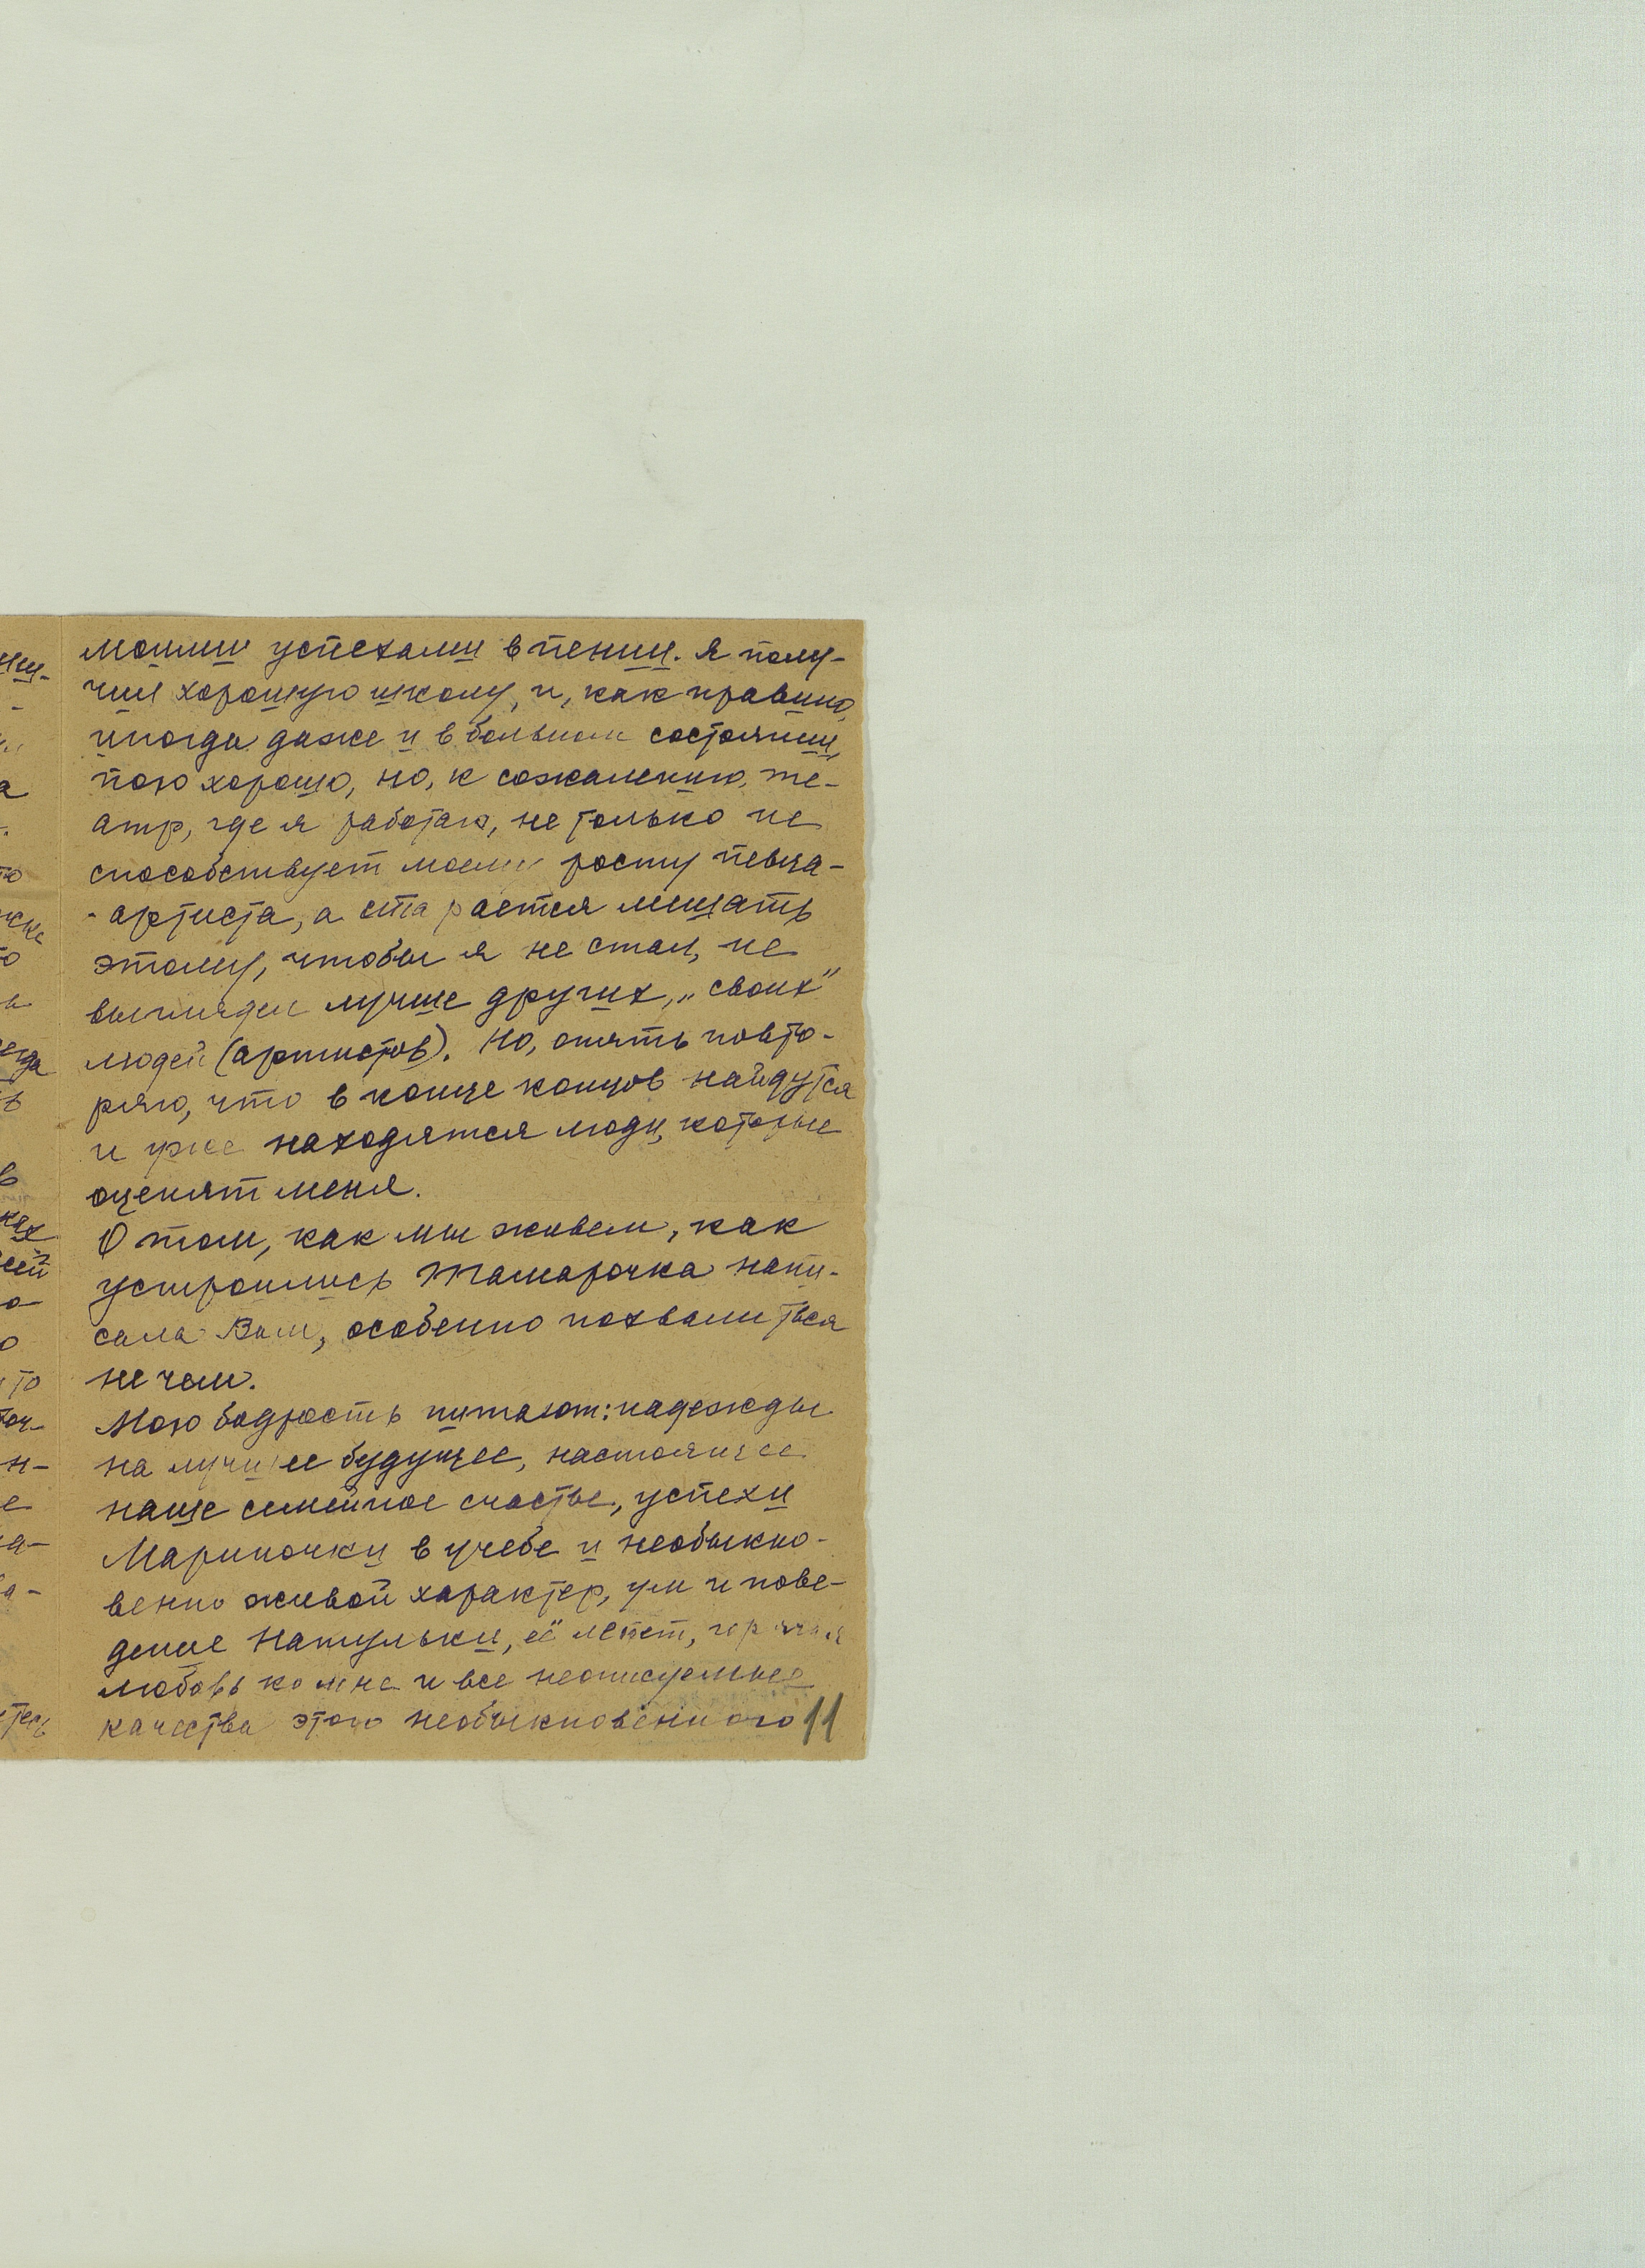 моими успехами в пении. Я полу-
чил хорошую школу, и, как правило,
иногда даже и в больном состоянии,
пою хорошо, но, к сожалению, те-
атр, где я работаю, не только не
способствует моему росту певца-
-артиста, а старается мешать
этому, чтобы я не стал, не
выглядел лучше других, „своих"
людей (артистов). Но, опять повто-
ряю, что в конце концов найдутся
и уже находятся люди, которые
оценят меня.
О том, как мы живем, как
устроились Тамарочка напи-
сала Вам, особенно похвалиться
не чем.
Мою бодрость питают: надежды
на лучшее будущее, настоящее
наше семейное счастье, успехи
Мариночки в учебе и необыкно-
венно живой характер, ум и пове-
дение Натульки, её лепет, горячая
любовь ко мне и все неописуемые
качества этого необыкновенного 11